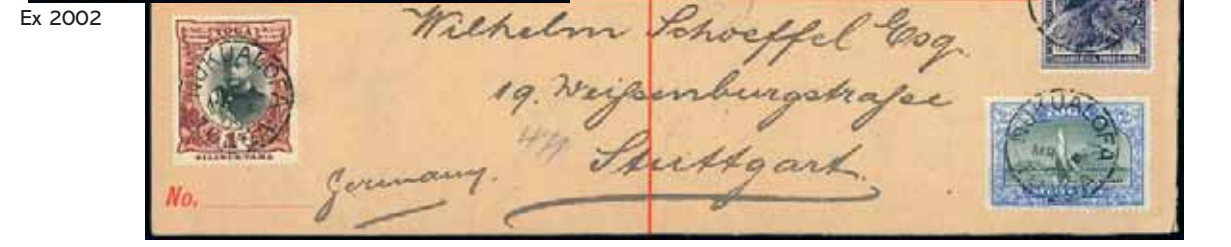 Ex 2002
Wilhelm Schoeffel Esq.
19. Weißenburgstraße
Stuttgart.
Germany.
No.
TOGA
NUKUALOFA
NUKUALOFA